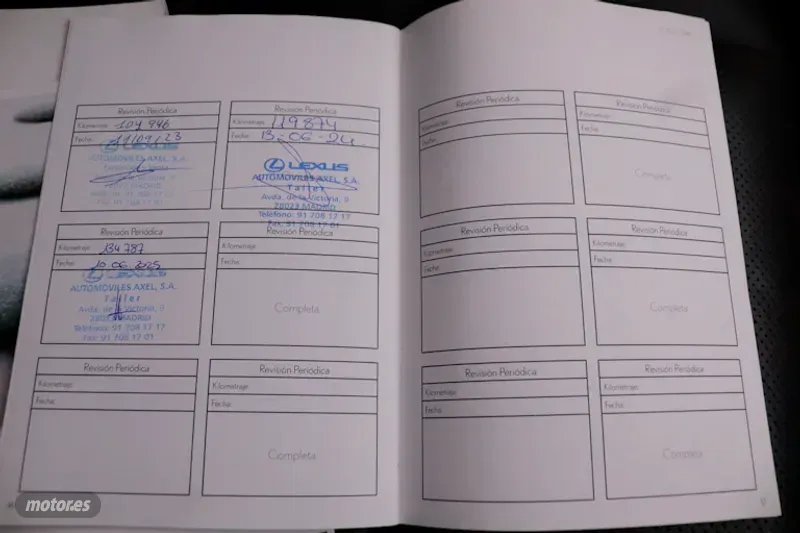 Revisión Periódica
Kilometraje: 104 946
Fecha: 11/09/23
LEXUS
AUTOMOVILES AXEL, S.A.
Revisión Periódica
Kilometraje: 119874
Fecha: 13-06-24.
LEXUS
AUTOMOVILES AXEL, S.A.
Taller
Avda. de la Victoria, 9
28023 MADRID
Teléfono: 91 708 17 17
Fax: 91 708 17 01
Revisión Periódica
Kilometraje: 134 787
Fecha: 10.06.2025
LEXUS
AUTOMOVILES AXEL, S.A.
Taller
Avda. de la Victoria, 9
28023 MADRID
Teléfono: 91 708 17 17
Fax: 91 708 17 01
Revisión Periódica
Kilometraje:
Fecha:
Completa
Revisión Periódica
Kilometraje:
Fecha:
Revisión Periódica
Kilometraje:
Fecha:
Completa
Revisión Periódica
Kilometraje:
Fecha:
Revisión Periódica
Kilometraje:
Fecha:
Completa
Revisión Periódica
Kilometraje:
Fecha:
Revisión Periódica
Kilometraje:
Fecha:
Completa
Revisión Periódica
Kilometraje:
Fecha:
Revisión Periódica
Kilometraje:
Fecha:
Completa
motor.es